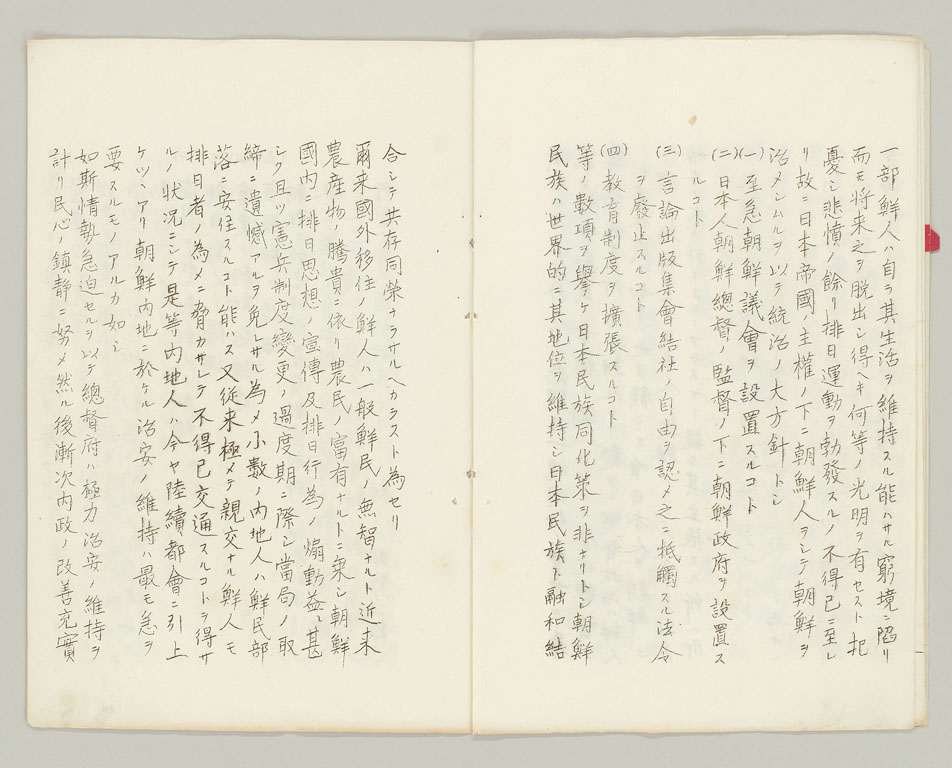 一部鮮人ハ自ラ其生活ヲ維持スル能ハサル窮境ニ陷リ
而モ将来之ヲ脱出シ得ヘキ何等ノ光明ヲ有セスト 
憂シ悲憤ノ餘リ排日運動ヲ勃發スルノ不得已ニ至レ
リ故ニ日本帝國ノ主權ノ下ニ朝鮮人ヲシテ朝鮮ヲ
治メシムルヲ以テ統治ノ大方針トシ
(一)至急朝鮮議會ヲ設置スルコト
(二)日本人朝鮮總督ノ監督ノ下ニ朝鮮政府ヲ設置ス
ルコト
(三)言論出版集會結社ノ自由ヲ認メ之ニ抵觸スル法令
ヲ廢止スルコト
(四)教育制度ヲ擴張スルコト
等ノ數項ヲ擧ケ日本民族同化策ヲ非ナリトシ朝鮮
民族ハ世界的ニ其地位ヲ維持シ日本民族ト融和結
合シテ共存同榮ナラサルヘカラスト為セリ
爾来國外移住ノ鮮人ハ一般鮮民ノ無智ナルト近来
農産物ノ騰貴ニ依リ農民ノ富有ナルトニ乗シ朝鮮
國内ニ排日思想ノ宣傳及排日行為ノ煽動益〻甚
シク且ツ憲兵制度変更ノ過度期ニ際シ當局ノ取
締ニ遺憾アルヲ免レサル為メ小數ノ内地人ハ鮮民部
落ニ安住スルコト能ハス又従来極メテ親交ナル鮮人モ
排日者ノ為メニ脅カサレテ不得已交通スルコトヲ得サ
ルノ状况ニシテ是等内地人ハ今ヤ陸續都會ニ引上
ケツヽアリ朝鮮内地ニ於ケル治安ノ維持ハ最モ急ヲ
要スルモノアルカ如シ
如斯情勢急迫セルヲ以テ總督府ハ極力治安ノ維持ヲ
計リ民心ノ鎮静ニ努メ然ル後漸次内政ノ改善充實